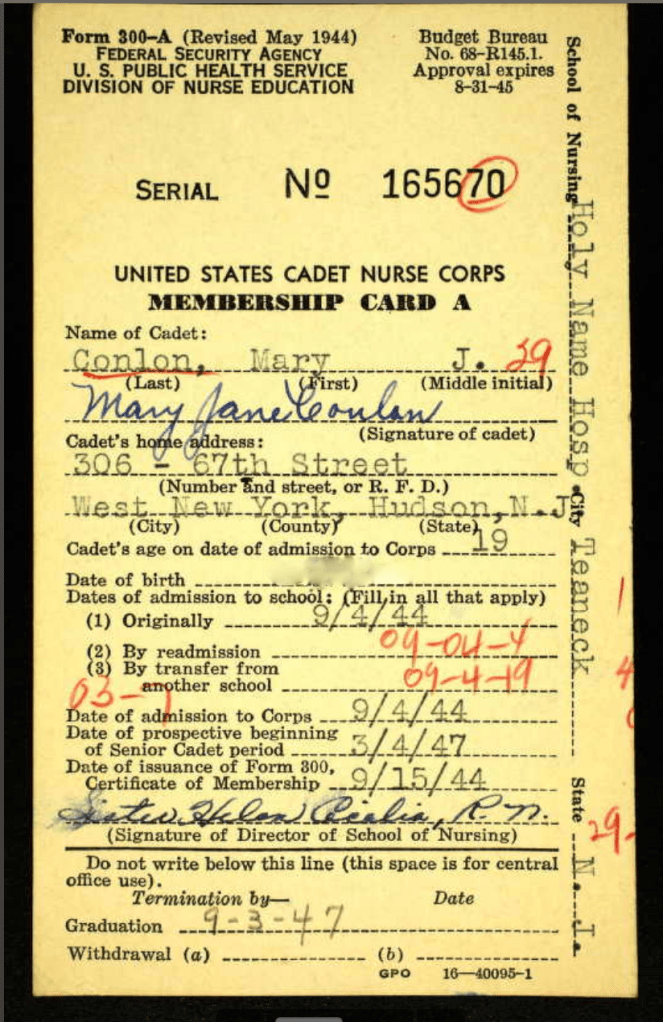 Form 300-A (Revised May 1944)
FEDERAL SECURITY AGENCY
U. S. PUBLIC HEALTH SERVICE
DIVISION OF NURSE EDUCATION
Budget Bureau
No. 68-R145.1.
Approval expires
8-31-45
SERIAL Nº 165670
UNITED STATES CADET NURSE CORPS
MEMBERSHIP CARD A
Name of Cadet:
Conlon, Mary J. 29
(Last) (First) (Middle initial)
Mary Jane Conlon
(Signature of cadet)
Cadet's home address:
306 - 67th Street
(Number and street, or R. F. D.)
West New York, Hudson, N.J.
(City) (County) (State)
Cadet's age on date of admission to Corps 19
Date of birth
Dates of admission to school: (Fill in all that apply)
(1) Originally 9/4/44
(2) By readmission 09-04-4
(3) By transfer from
another school 09-4-19
03-
Date of admission to Corps 9/4/44
Date of prospective beginning
of Senior Cadet period 3/4/47
Date of issuance of Form 300,
Certificate of Membership 9/15/44
Sister Helen Cecilia, R. N.
(Signature of Director of School of Nursing)
Do not write below this line (this space is for central
office use).
Termination by— Date
Graduation 9-3-47
Withdrawal (a) (b)
GPO 16—40095-1
School of Nursing Holy Name Hosp. City Teaneck State N. J.
29-